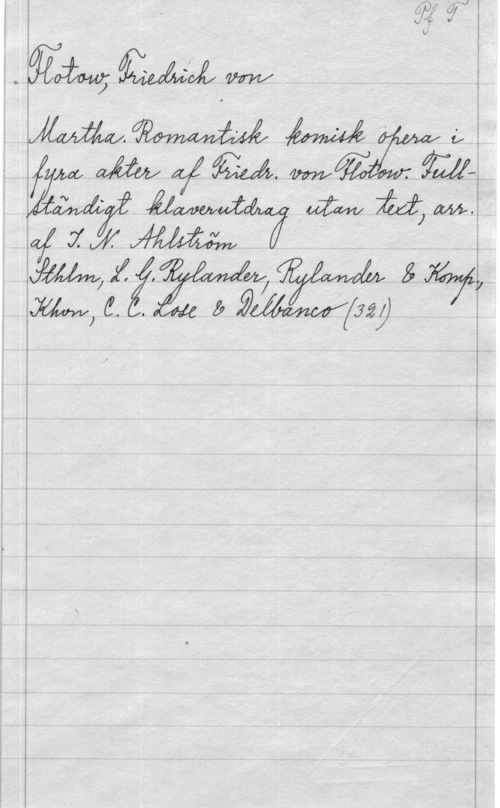 Pf F
Flotow, Friedrich von
Martha. Romantisk komisk opera i
fyra akter af Friedr. von Flotow. Full-
ständigt klaverutdrag utan text, arr.
af J. N. Ahlström
Sthlm, L. G. Rylander, Rylander & Komp.,
Khvn, C. C. Lose & Delbanco (321)